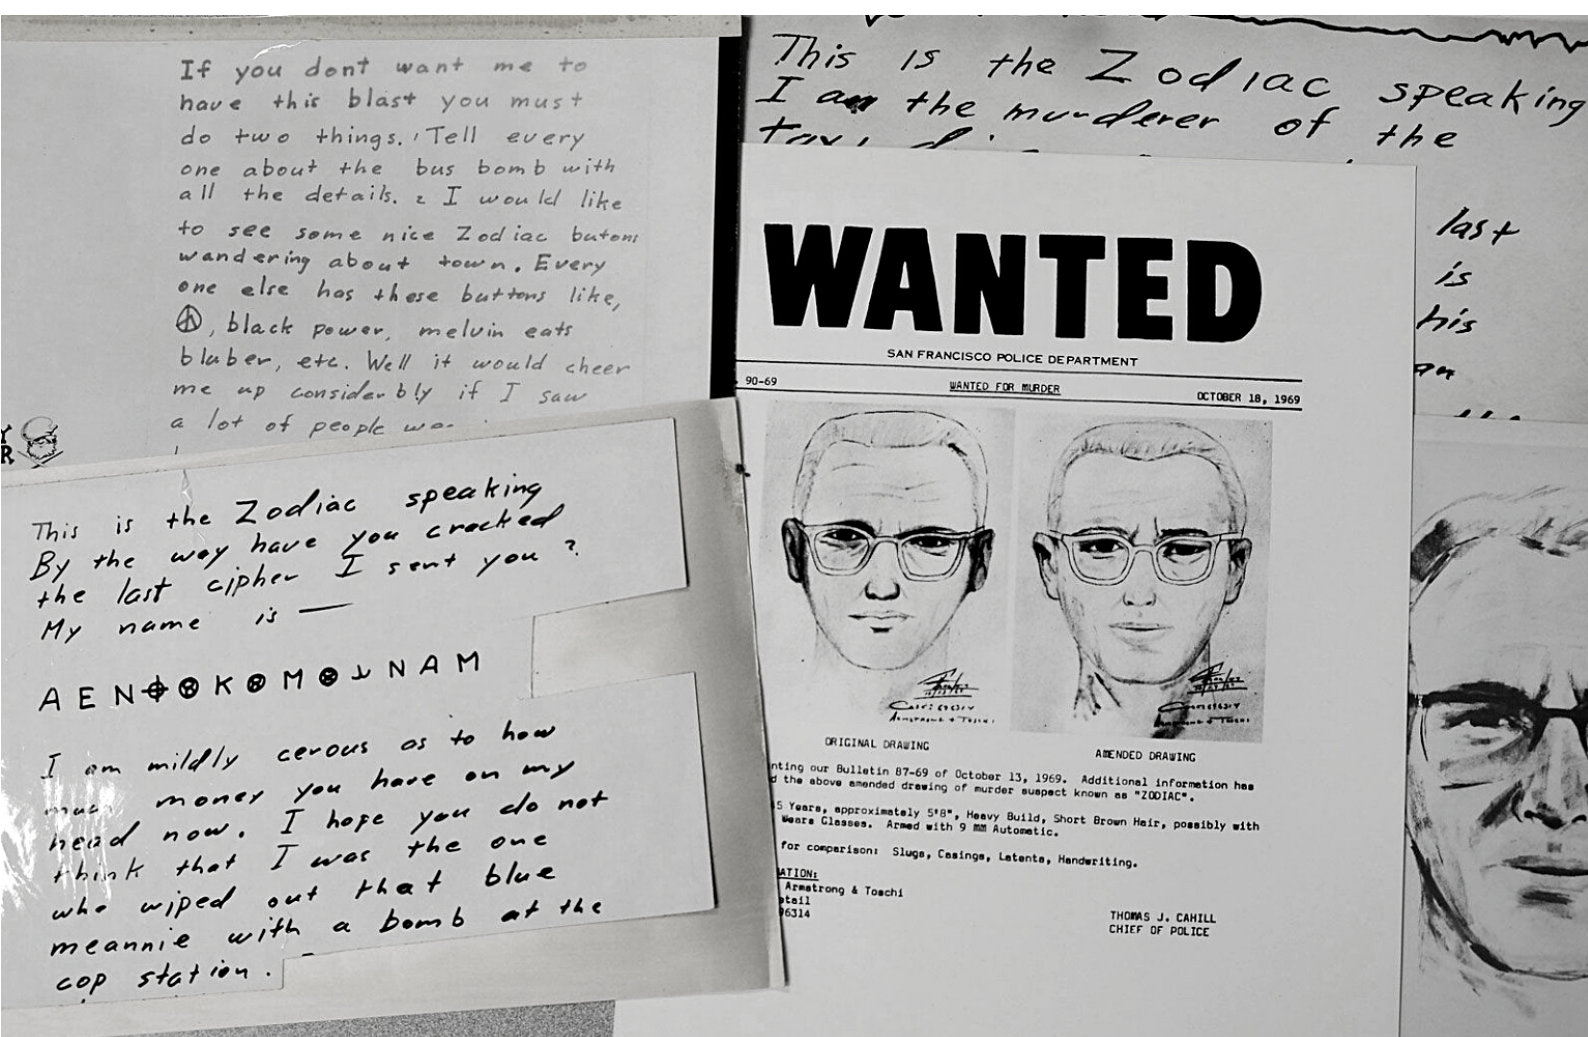 If you dont want me to
have this blast you must
do two things. 1 Tell every
one about the bus bomb with
all the details. 2 I would like
to see some nice Zodiac butons
wandering about town. Every
one else has these buttons like,
☮, black power, melvin eats
bluber, etc. Well it would cheer
me up considerbly if I saw
a lot of people
This is the Zodiac speaking
By the way have you cracked
the last cipher I sent you ?
My name is —
A E N ⌖ ⊗ K ⊗ M ⊗ ⅃ N A M
I am mildly cerous as to how
much money you have on my
head now. I hope you do not
think that I was the one
who wiped out that blue
meannie with a bomb at the
cop station.
This is the Zodiac speaking
I am the murderer of the
last
is
his
WANTED
SAN FRANCISCO POLICE DEPARTMENT
90-69 WANTED FOR MURDER OCTOBER 18, 1969
ORIGINAL DRAWING AMENDED DRAWING
nting our Bulletin 87-69 of October 13, 1969. Additional information has
d the above amended drawing of murder suspect known as "ZODIAC".
5 Years, approximately 5'8", Heavy Build, Short Brown Hair, possibly with
Wears Glasses. Armed with 9 MM Automatic.
for comparison: Slugs, Casings, Latents, Handwriting.
ATION:
Armstrong & Toschi
etail
96314
THOMAS J. CAHILL
CHIEF OF POLICE